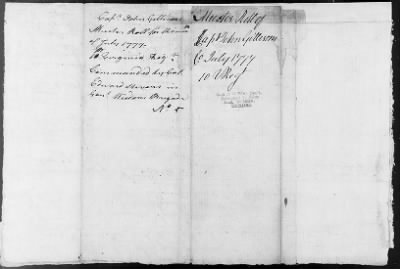 Capt. John Gillison
Muster Roll for the Month
of July 1777.
10 Virginia Regt.
Commanded by Col.
Edward Stevens in
Genl. Weedons Brigade
No. 5
Muster Roll of
Capt. John Gillison
to July 1777
10 V Regt